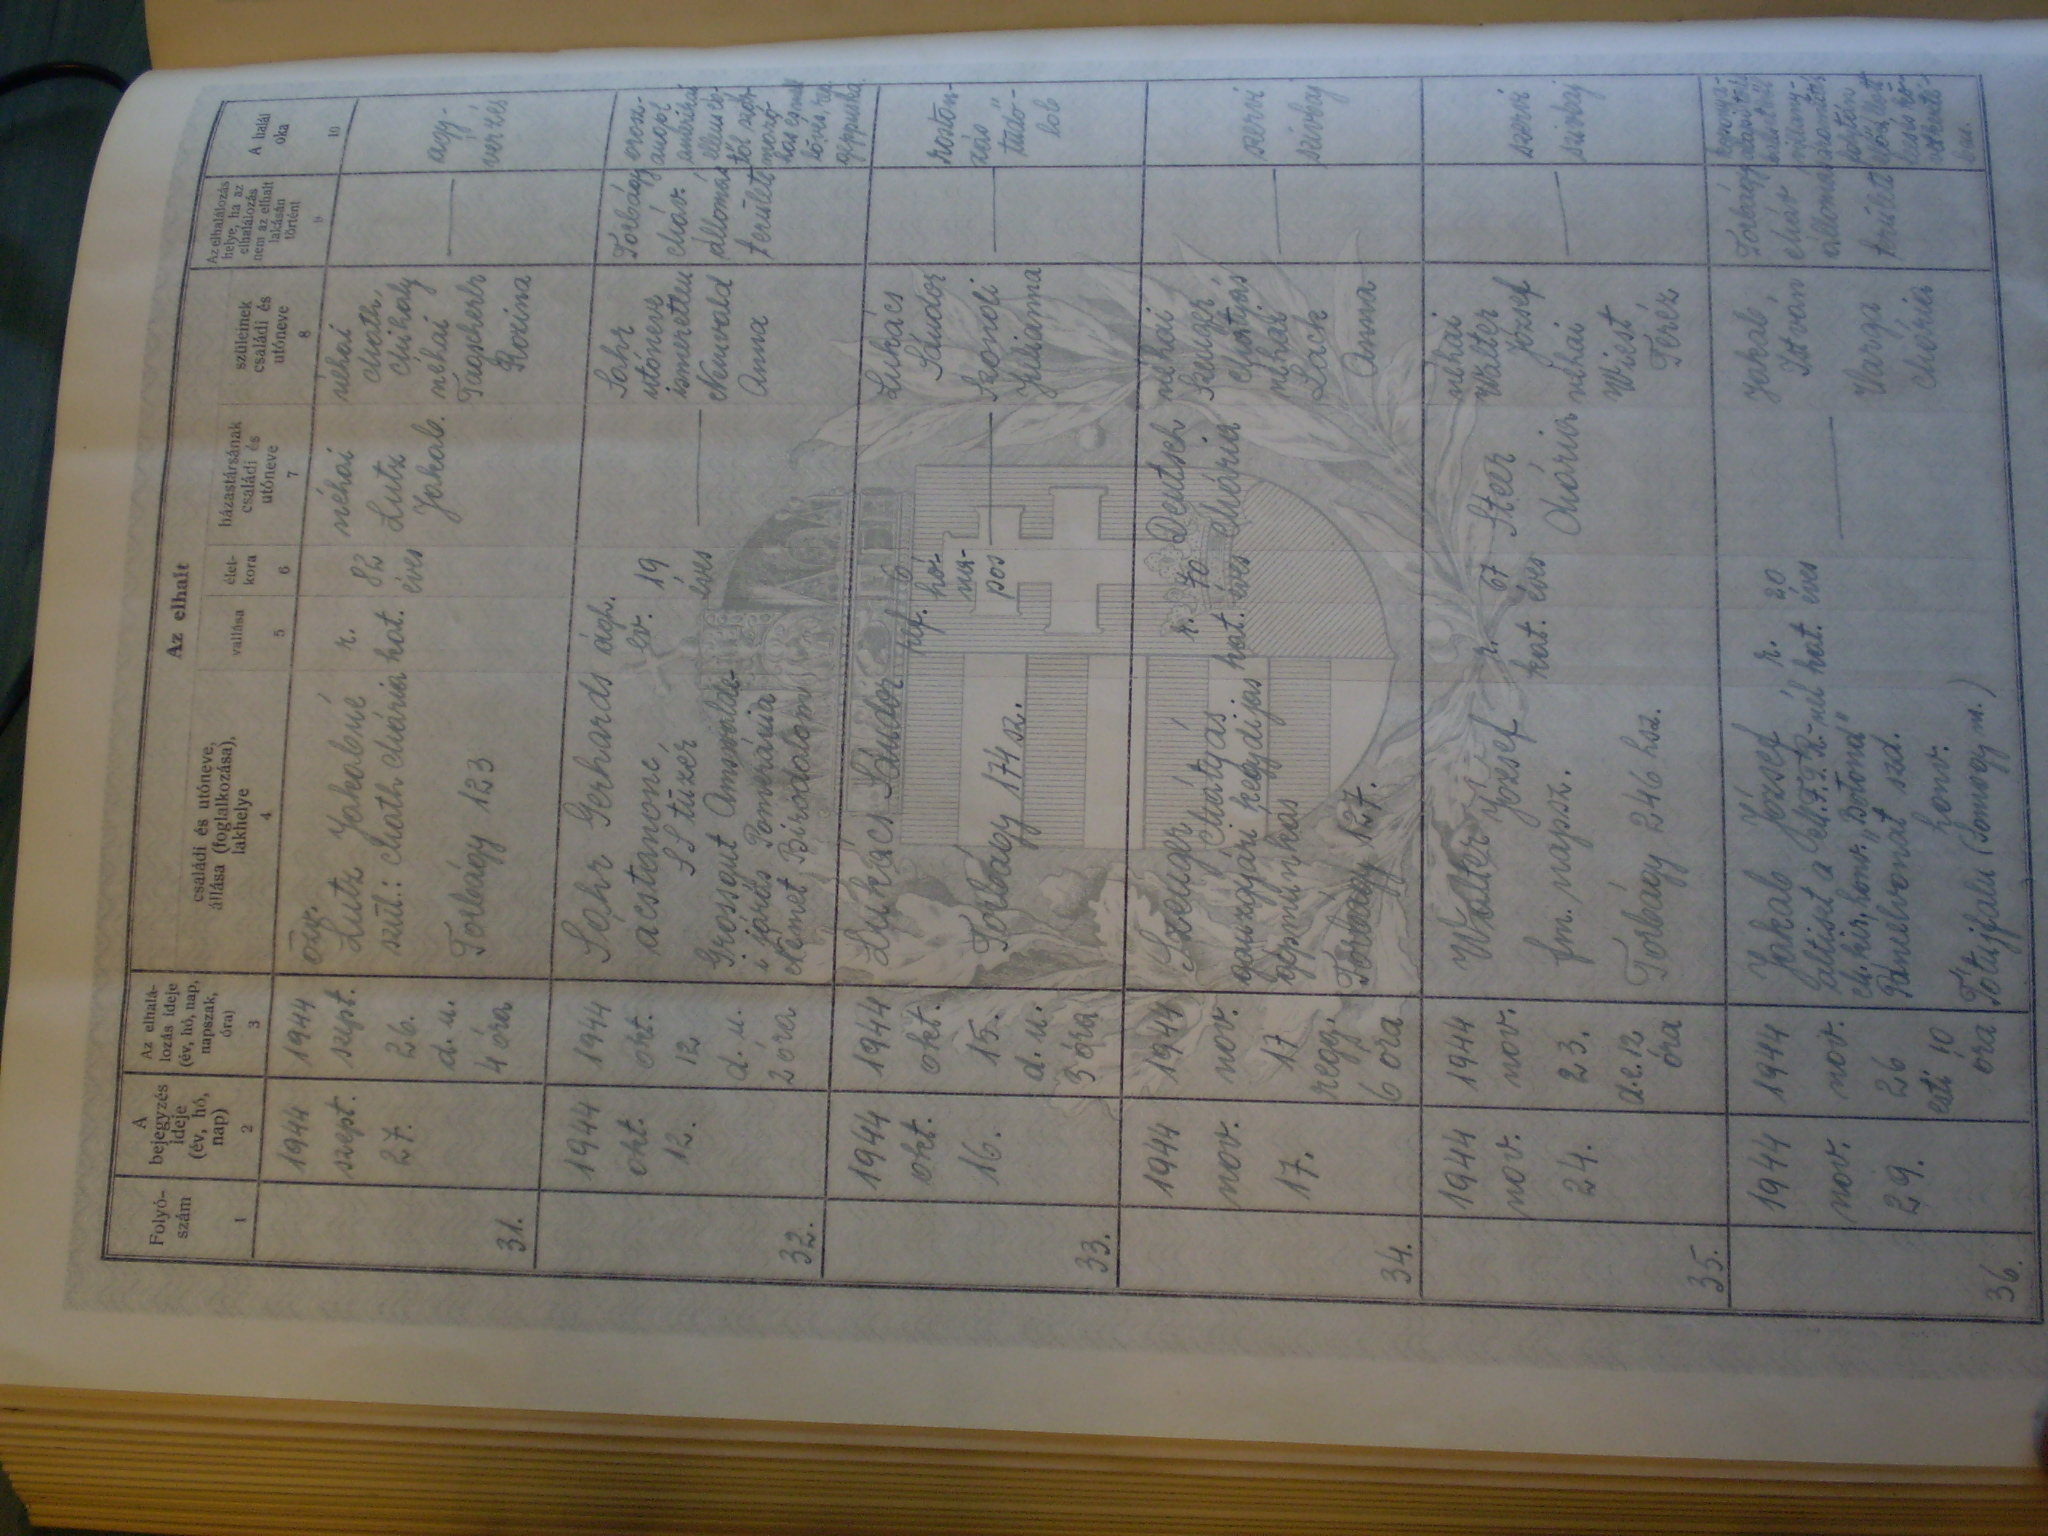 Folyó-
szám
1
A
bejegyzés
ideje
(év, hó,
nap)
2
Az elhalá-
lozás ideje
(év, hó, nap,
napszak,
óra)
3
Az elhalt
családi és utóneve,
állása (foglalkozása),
lakhelye
4
vallása
5
élet-
kora
6
házastársának
családi és
utóneve
7
szüleinek
családi és
utóneve
8
Az elhalálozás
helye, ha az
elhalálozás
nem az elhalt
lakásán
történt
9
A halál
oka
10
31.
1944
szept.
27.
1944
szept.
26.
d. u.
4 óra
özv.
Lutz Jakabné
szül.: Moth Mária
Torbágy 123
r.
kat.
82
éves
néhai
Lutz
Jakab.
néhai
Moth
Mihály
néhai
Rozina
—
agy-
vérzés
32.
1944
okt.
12.
1944
okt.
12
d. u.
2 óra
Sahr Gerhards
ácstanonc
SS tüzér
i járás Pomeránia
Német Birodalom
ág.
ev.
19
éves
—
Sahr
utóneve
ismeretlen
Neuvald
Anna
Torbágy
máv.
állomás
terület
33.
1944
okt.
16.
1944
okt.
15.
d. u.
3 óra
Lukács Sándor
Torbágy 174 sz.
ref.
6
hó-
na-
pos
—
Lukács
Sándor
Szondi
Julianna
—
tüdő-
lob
34.
1944
nov.
17.
1944
nov.
17
regg.
6 óra
Szauger
Mátyás
nyugdíjas
Torbágy 127.
r.
kat.
70
éves
Deutsch
Mária
néhai
Szauger
Mátyás
néhai
Lack
Anna
—
szervi
szívbaj
35.
1944
nov.
24.
1944
nov.
23.
d.e. 12
óra
Walter
József
fm. napsz.
Torbágy 246 hsz.
r.
kat.
67
éves
Ster
Mária
néhai
Walter
József
néhai
Wiest
Teréz
—
szervi
szívbaj
36.
1944
nov.
29.
1944
nov.
26
esti 10
óra
Jakab József
m. kir. honv. „Botond"
honv.
Tótújfalu (Somogy m.)
r.
kat.
20
éves
—
Jakab
István
Varga
Mária
Torbágy
máv
állomás
terület